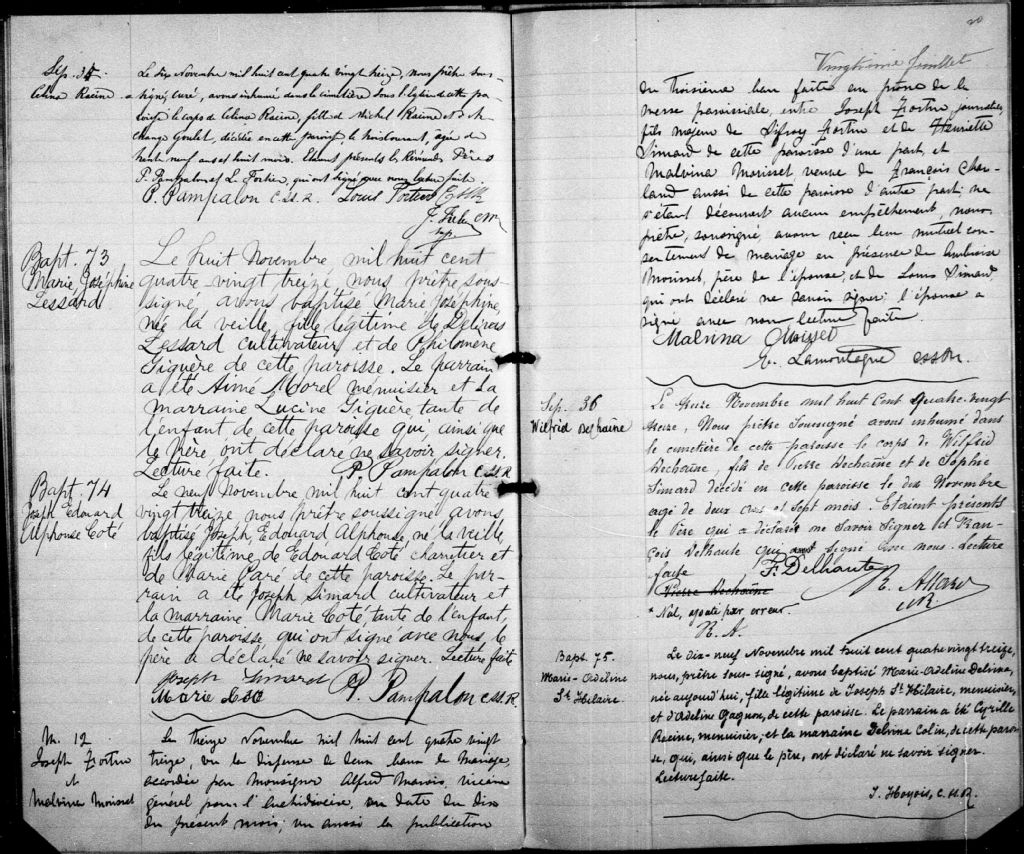 Sép. 35
Célina Racine
Le six Novembre mil huit cent quatre vingt treize, nous prêtre sous-
signé, curé, avons inhumé dans le cimetière sous l'église de cette pa-
roisse le corps de Célina Racine, fille de Michel Racine et de
Goulet, décédée en cette paroisse, agée de
trente neuf ans et huit mois. Etaient présents les Révérends Pères
P. Pampalon et L. Fortier, qui ont signé avec nous lecture faite.
P. Pampalon C.SS.R. Louis Fortier CSSR
Bapt. 73
Marie Joséphine
Lessard
Le huit Novembre mil huit cent
quatre-vingt treize, nous prêtre sous-
signé, avons baptisé Marie Joséphine,
née la veille, fille légitime de
Lessard cultivateur et de Philomène
Giguère de cette paroisse. Le parrain
a été Aimé Morel ménuisier et la
marraine Lucine Giguère, tante de
l'enfant de cette paroisse qui, ainsi que
le père, ont déclaré ne savoir signer.
Lecture faite. P. Pampalon C.SS.R.
Bapt. 74
Joseph Edouard
Alphonse Coté
Le neuf Novembre mil huit cent quatre
vingt treize, nous prêtre soussigné avons
baptisé Joseph, Edouard Alphonse, né la veille
fils légitime de Edouard Coté charretier et
de Marie Paré de cette paroisse. Le par-
rain a été Joseph Simard cultivateur et
la marraine Marie Coté, tante de l'enfant,
de cette paroisse qui ont signé avec nous, le
père a déclaré ne savoir signer. Lecture faite
Joseph Simard P. Pampalon C.SS.R.
Marie
M. 12
Joseph Fortin
et
Malvina Morisset
Le treize Novembre mil huit cent quatre vingt
treize, vu la dispense de deux bans de mariage
accordée par Monsignor Alfred Marois, vicaire
général pour l'archidiocèse, en date du dix
du présent mois; vu aussi la publication
20
Vingtième feuillet
du troisième ban faite au prône de la
messe paroissiale, entre Joseph Fortin journalier,
fils majeur de Fortin et de Henriette
Simard de cette paroisse d'une part, et
Malvina Morisset, veuve de François Char-
land aussi de cette paroisse d'autre part; ne
s'étant découvert aucun empêchement, nous
prêtre, soussigné, avons reçu leur mutuel con-
sentement de mariage en présence de Ambroise
Morisset, père de l'épouse, et de Louis Simard,
qui ont déclaré ne savoir signer; l'épouse a
signé avec nous lecture faite.
Malvina
E. Lamontagne CSSR.
Sep. 36
Wilfrid Dechaîne
Le treize Novembre mil huit cent quatre-vingt
treize, Nous prêtre soussigné avons inhumé dans
le cimetière de cette paroisse le corps de Wilfrid
Dechaîne, fils de Pierre Dechaîne et de Sophie
Simard décédé en cette paroisse le dix Novembre
agé de deux ans et sept mois. Etaient présents
le Père qui a déclaré ne savoir signer et Fran-
çois Delhaute qui signé avec nous. Lecture
faite F. Delhaute
Pierre Dechaîne
* Nul, ajouté par erreur.
R. A.
Bapt. 75.
Marie-Adeline
St Hilaire
Le dix-neuf Novembre mil huit cent quatre vingt treize,
nous, prêtre sous-signé, avons baptisé Marie-Adeline Delvina,
née aujourd'hui, fille légitime de Joseph St Hilaire, menuisier,
et d'Adeline Gagnon, de cette paroisse. Le parrain a été Cyrille
Racine, menuisier, et la marraine Delvina Colin, de cette parois-
se, qui, ainsi que le père, ont déclaré ne savoir signer.
Lecture faite.
J. Hoyois, C.SS.R.